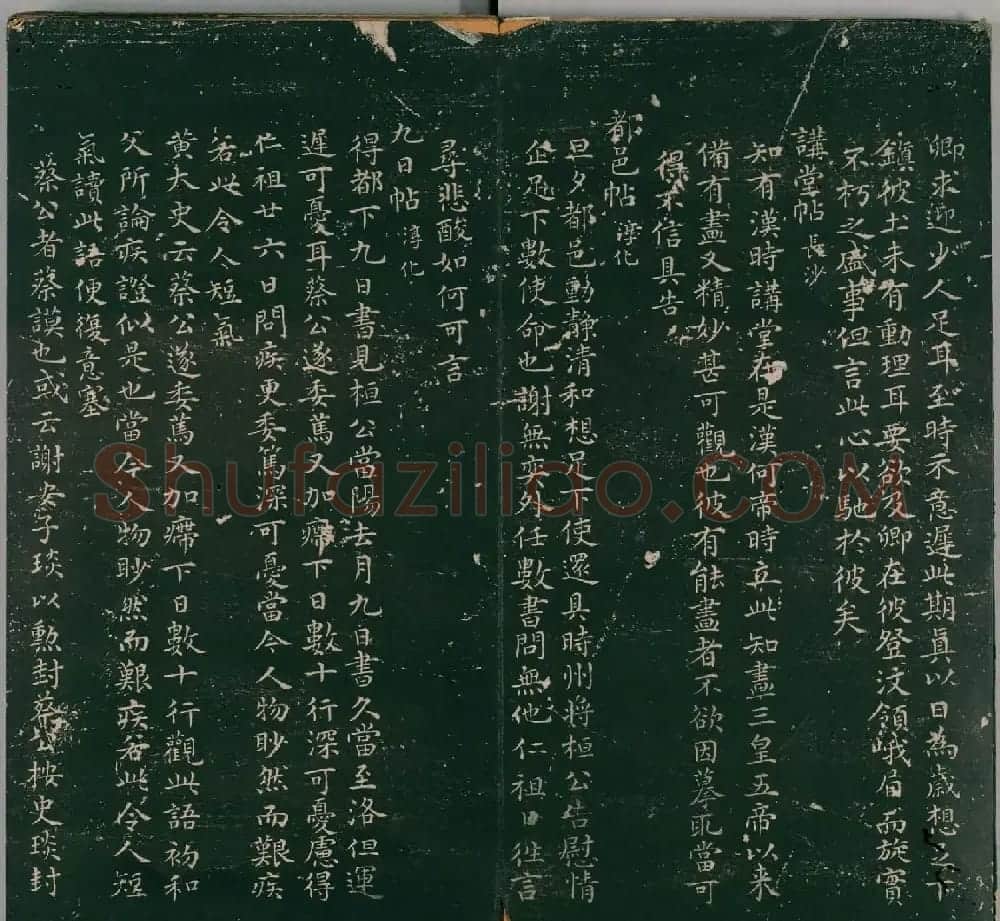 卿求迎少人足耳至時示意遲此期真以日為歲想足下
鎮彼土未有動理耳要欲及卿在彼登汶領峨眉而旋實
不朽之盛事但言此心以馳於彼矣
講堂帖 長沙
知有漢時講堂在是漢何帝時立此知畫三皇五帝以来
備有畫又精妙甚可觀也彼有能畫者不欲因摹取當可
得不信具告
都邑帖 淳化
旦夕都邑動靜清和想足下使還具時州將桓公告慰情
企足下數使命也謝無奕外任數書問無他仁祖日往言
尋悲酸如何可言
九日帖 淳化
得都下九日書見桓公當陽去月九日書久當至洛但運
遲可憂耳蔡公遂委篤又加癤下日數十行深可憂慮得
仁祖廿六日問疾更委篤深可憂當今人物眇然而艱疾
若此令人短氣
黄太史云蔡公遂委篤又加癤下日數十行觀此語初和
父所論疾證似是也當今人物眇然而艱疾若此令人短
氣讀此語便復意塞
蔡公者蔡謨也或云謝安子琰以勲封蔡公按史琰封
Shufaziliao.COM